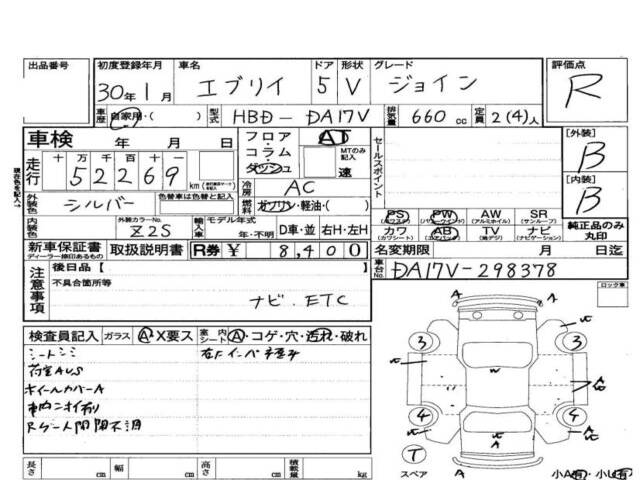 出品番号 初度登録年月 車名 ドア 形状 グレード 評価点
30年1月 エブリイ 5 V ジョイン R
車歴 自家用・( ) 型式 HBD-DA17V 排気量 660 cc 定員 2(4)人
車検 年 月 日 フロア・コラム・ダッシュ AT MTのみ記入 速 セールスポイント [外装] B
走行 十 万 千 百 十 一
52269 km
冷房 AC [内装] B
外装色 シルバー 色替車は色替と記入 燃料 ガソリン・軽油・( )
内装色 外装カラーNo. Z2S 輸入車 モデル年式 年・不明 D車・並 右H・左H
PS (パワステ) PW (パワーウインド) AW (アルミホイル) SR (サンルーフ)
カワ (カワシート) AB (エアバッグ) TV (地デジ) ナビ (ナビゲーション) 純正品のみ丸印
新車保証書 ディーラー捺印あるもの 取扱説明書 R券 ¥ 8,400 名変期限 月 日迄
現在色を記入→
注意事項 後日品【 車台No. DA17V-298378
不具合箇所等 ロック車
ナビ.ETC
検査員記入 ガラス A・X要ス 室内シート A・コゲ・穴・汚れ・破れ
シートシミ
荷室AUS
ホイールカバーA
3 3
4 4
T
スペア A 小A有・小U有
長さ cm 幅 cm 高さ cm 積載量 kg